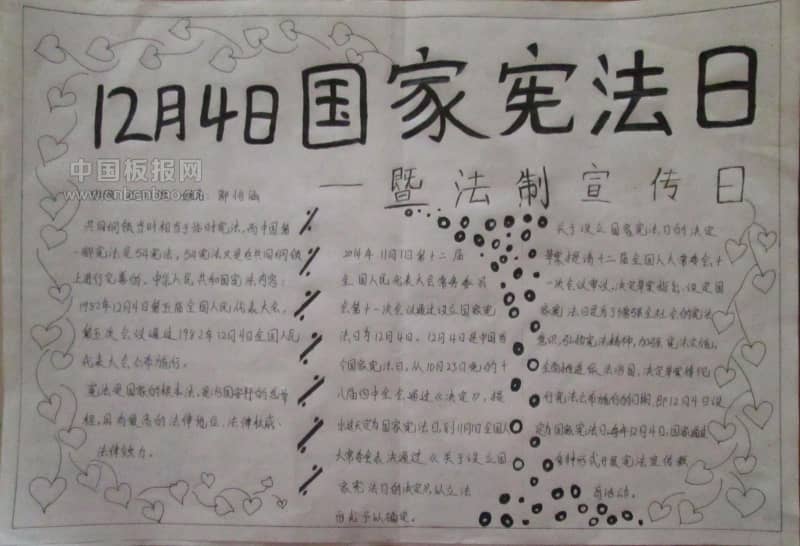 12月4日国家宪法日
——暨法制宣传日
中国板报网
www.cnbanbao.com
共同纲领当时相当于临时宪法,而中国第
一部宪法是54宪法,54宪法又是在共同纲领
上进行完善的。中华人民共和国宪法内容:
1982年12月4日第五届全国人民代表大会,
第五次会议通过1982年12月4日全国人民
代表大会公布施行。
宪法是国家的根本法,是
程,具有最高的法律地位、法律权威、
法律效力。
2014年11月1日第十二届
全国人民代表大会常务委员
会第十一次会议通过设立国家宪
法日为12月4日。12月4日是中国
个国家宪法日,从10月23日晚的十
八届四中全会通过《决定》,提
出这天定为国家宪法日,到11月1日全国人
大常委会表决通过《关于设立国
家宪法日的决定》,以立法
形式予以确定。
关于设立国家宪法日的决定
草案提请十二届全国人大常委会十
一次会议审议,决定草案指出,设定国
家宪法日是为了增强全社会的宪法
意识,弘扬宪法精神,加强宪法实施,
全面推进依法治国。决定草案将现
行宪法公布施行的日期,即12月4日设
定为国家宪法日,每年12月4日,国家通过
各种形式开展宪法宣传教
育活动。